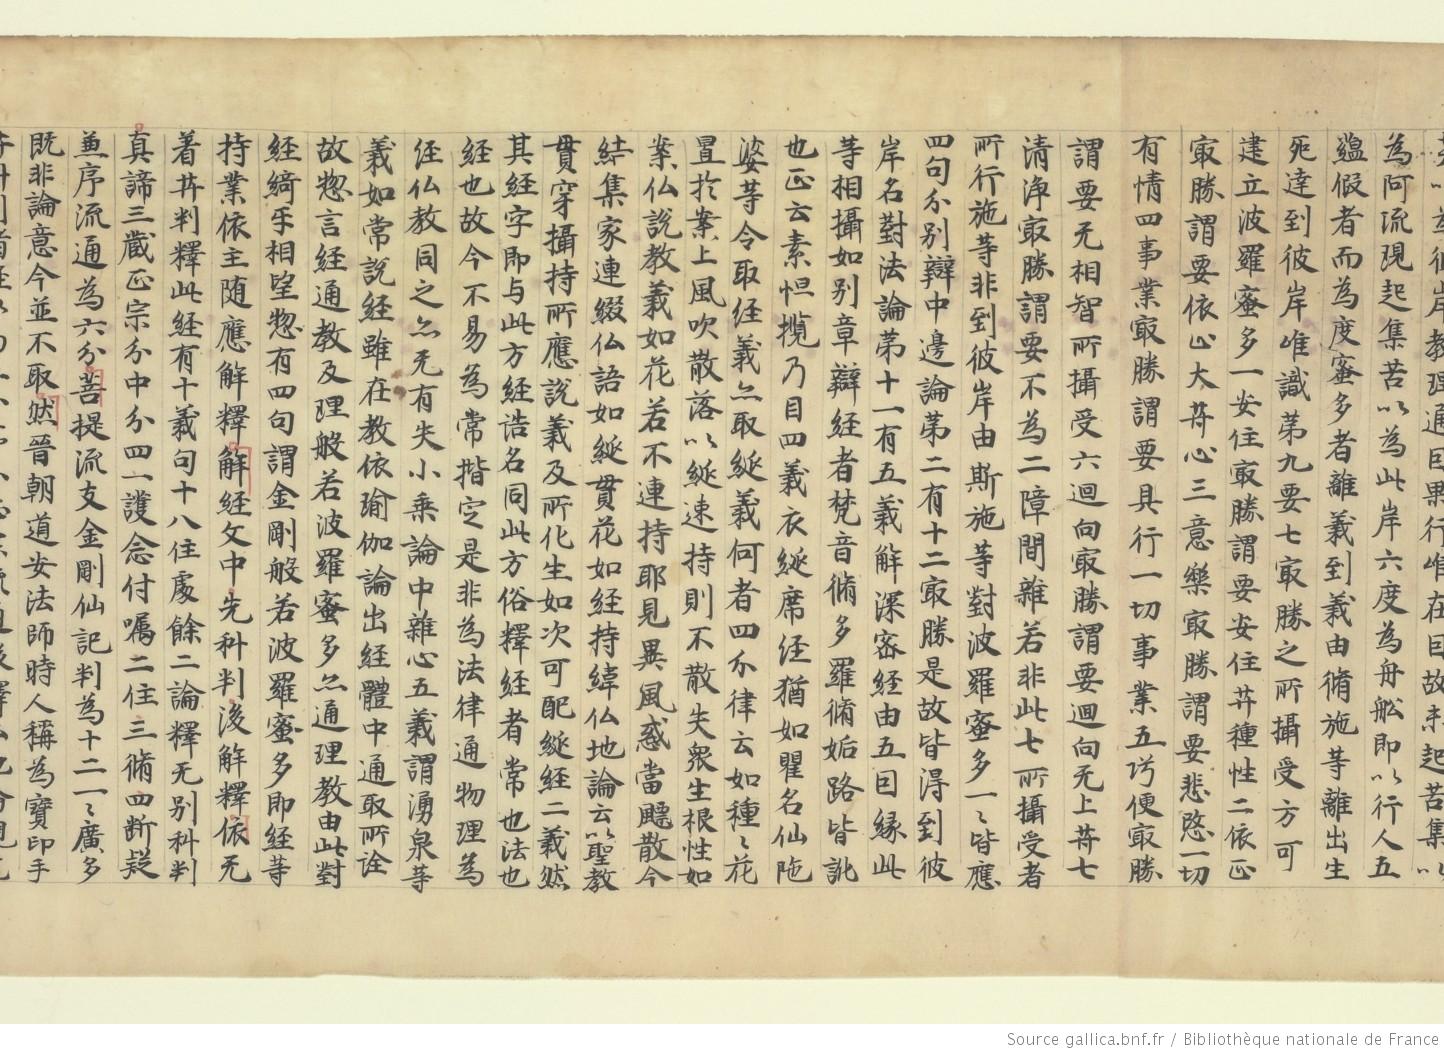 為阿流現起集苦以為此岸六度為舟舩即以行人五
蘊假者而為度蜜多者離義到義由脩施等離出生
死達到彼岸唯識苐九要七㝡勝之所攝受方可
建立波羅蜜多一安住㝡勝謂要安住䒭種性二依止
㝡勝謂要依止大䒭心三意樂㝡勝謂要悲愍一切
有情四事業㝡勝謂要具行一切事業五巧便㝡勝
謂要无相智所攝受六迴向㝡勝謂要迴向无上䒭七
清淨㝡勝謂要不為二障間雜若非此七所攝受者
所行施等非到彼岸由斯施等對波羅蜜多一〻皆應
四句分別辯中邊論苐二有十二㝡勝是故皆得到彼
岸名對法論苐十一有五義解深密經由五因緣此
等相攝如別章辯經者梵音脩多羅脩姤路皆訛
也正云素怛攬乃目四義衣綖席經猶如瞿名仙陁
婆等令取經義亦取綖義何者四分律云如種〻花
置扵案上風吹散落以綖速持則不散失衆生根性如
案仏說教義如花若不連持耶見異風惑當飄散今
結集家連綴仏語如綖貫花如經持緯仏地論云以聖教
貫穿攝持所應說義及所化生如次可配綖經二義然
其經字即与此方經誥名同此方俗釋經者常也法也
經也故今不易為常揩定是非為法律通物理為
經仏教同之亦无有失小乗論中雜心五義謂湧泉等
義如常說經雖在教依瑜伽論出經體中通取所詮
故惣言經通教及理般若波羅蜜多亦通理教由此對
經綺乎相望惣有四句謂金剛般若波羅蜜多即經等
持業依主随應解釋解經文中先科判後解釋依无
着䒭判釋此經有十義句十八住處餘二論釋无別科判
真諦三蔵正宗分中分四一護念付囑二住三脩四斷疑
並序流通為六分菩提流支金剛仙記判為十二一〻廣多
既非論意今並不取然晉朝道安法師時人稱為寶印手
Source gallica.bnf.fr / Bibliothèque nationale de France